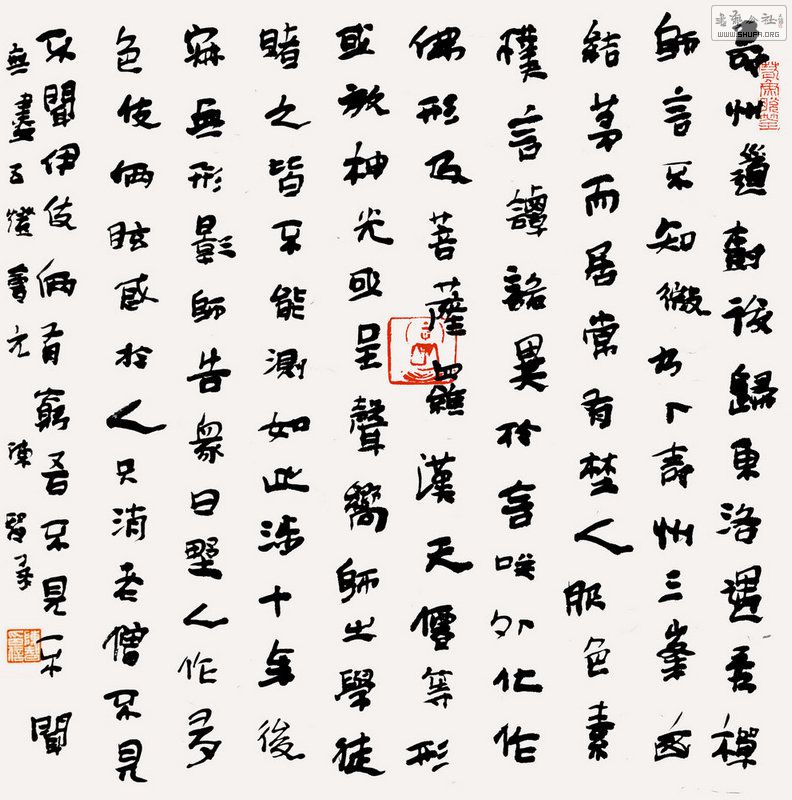 壽州道樹後歸東洛遇秀禪
師言下知微乃卜壽州三峯山
結茅而居常有野人服色素
樸言譚詭異於言笑外化作
佛形及菩薩羅漢天僊等形
或放神光或呈聲響師之學徒
睹之皆不能測如此涉十年後
寂無形影師告眾曰野人作多
色伎倆眩惑於人只消老僧不見
不聞伊伎倆有窮吾不見不聞
無盡五燈會元 陳
WWW.SHUFA.ORG